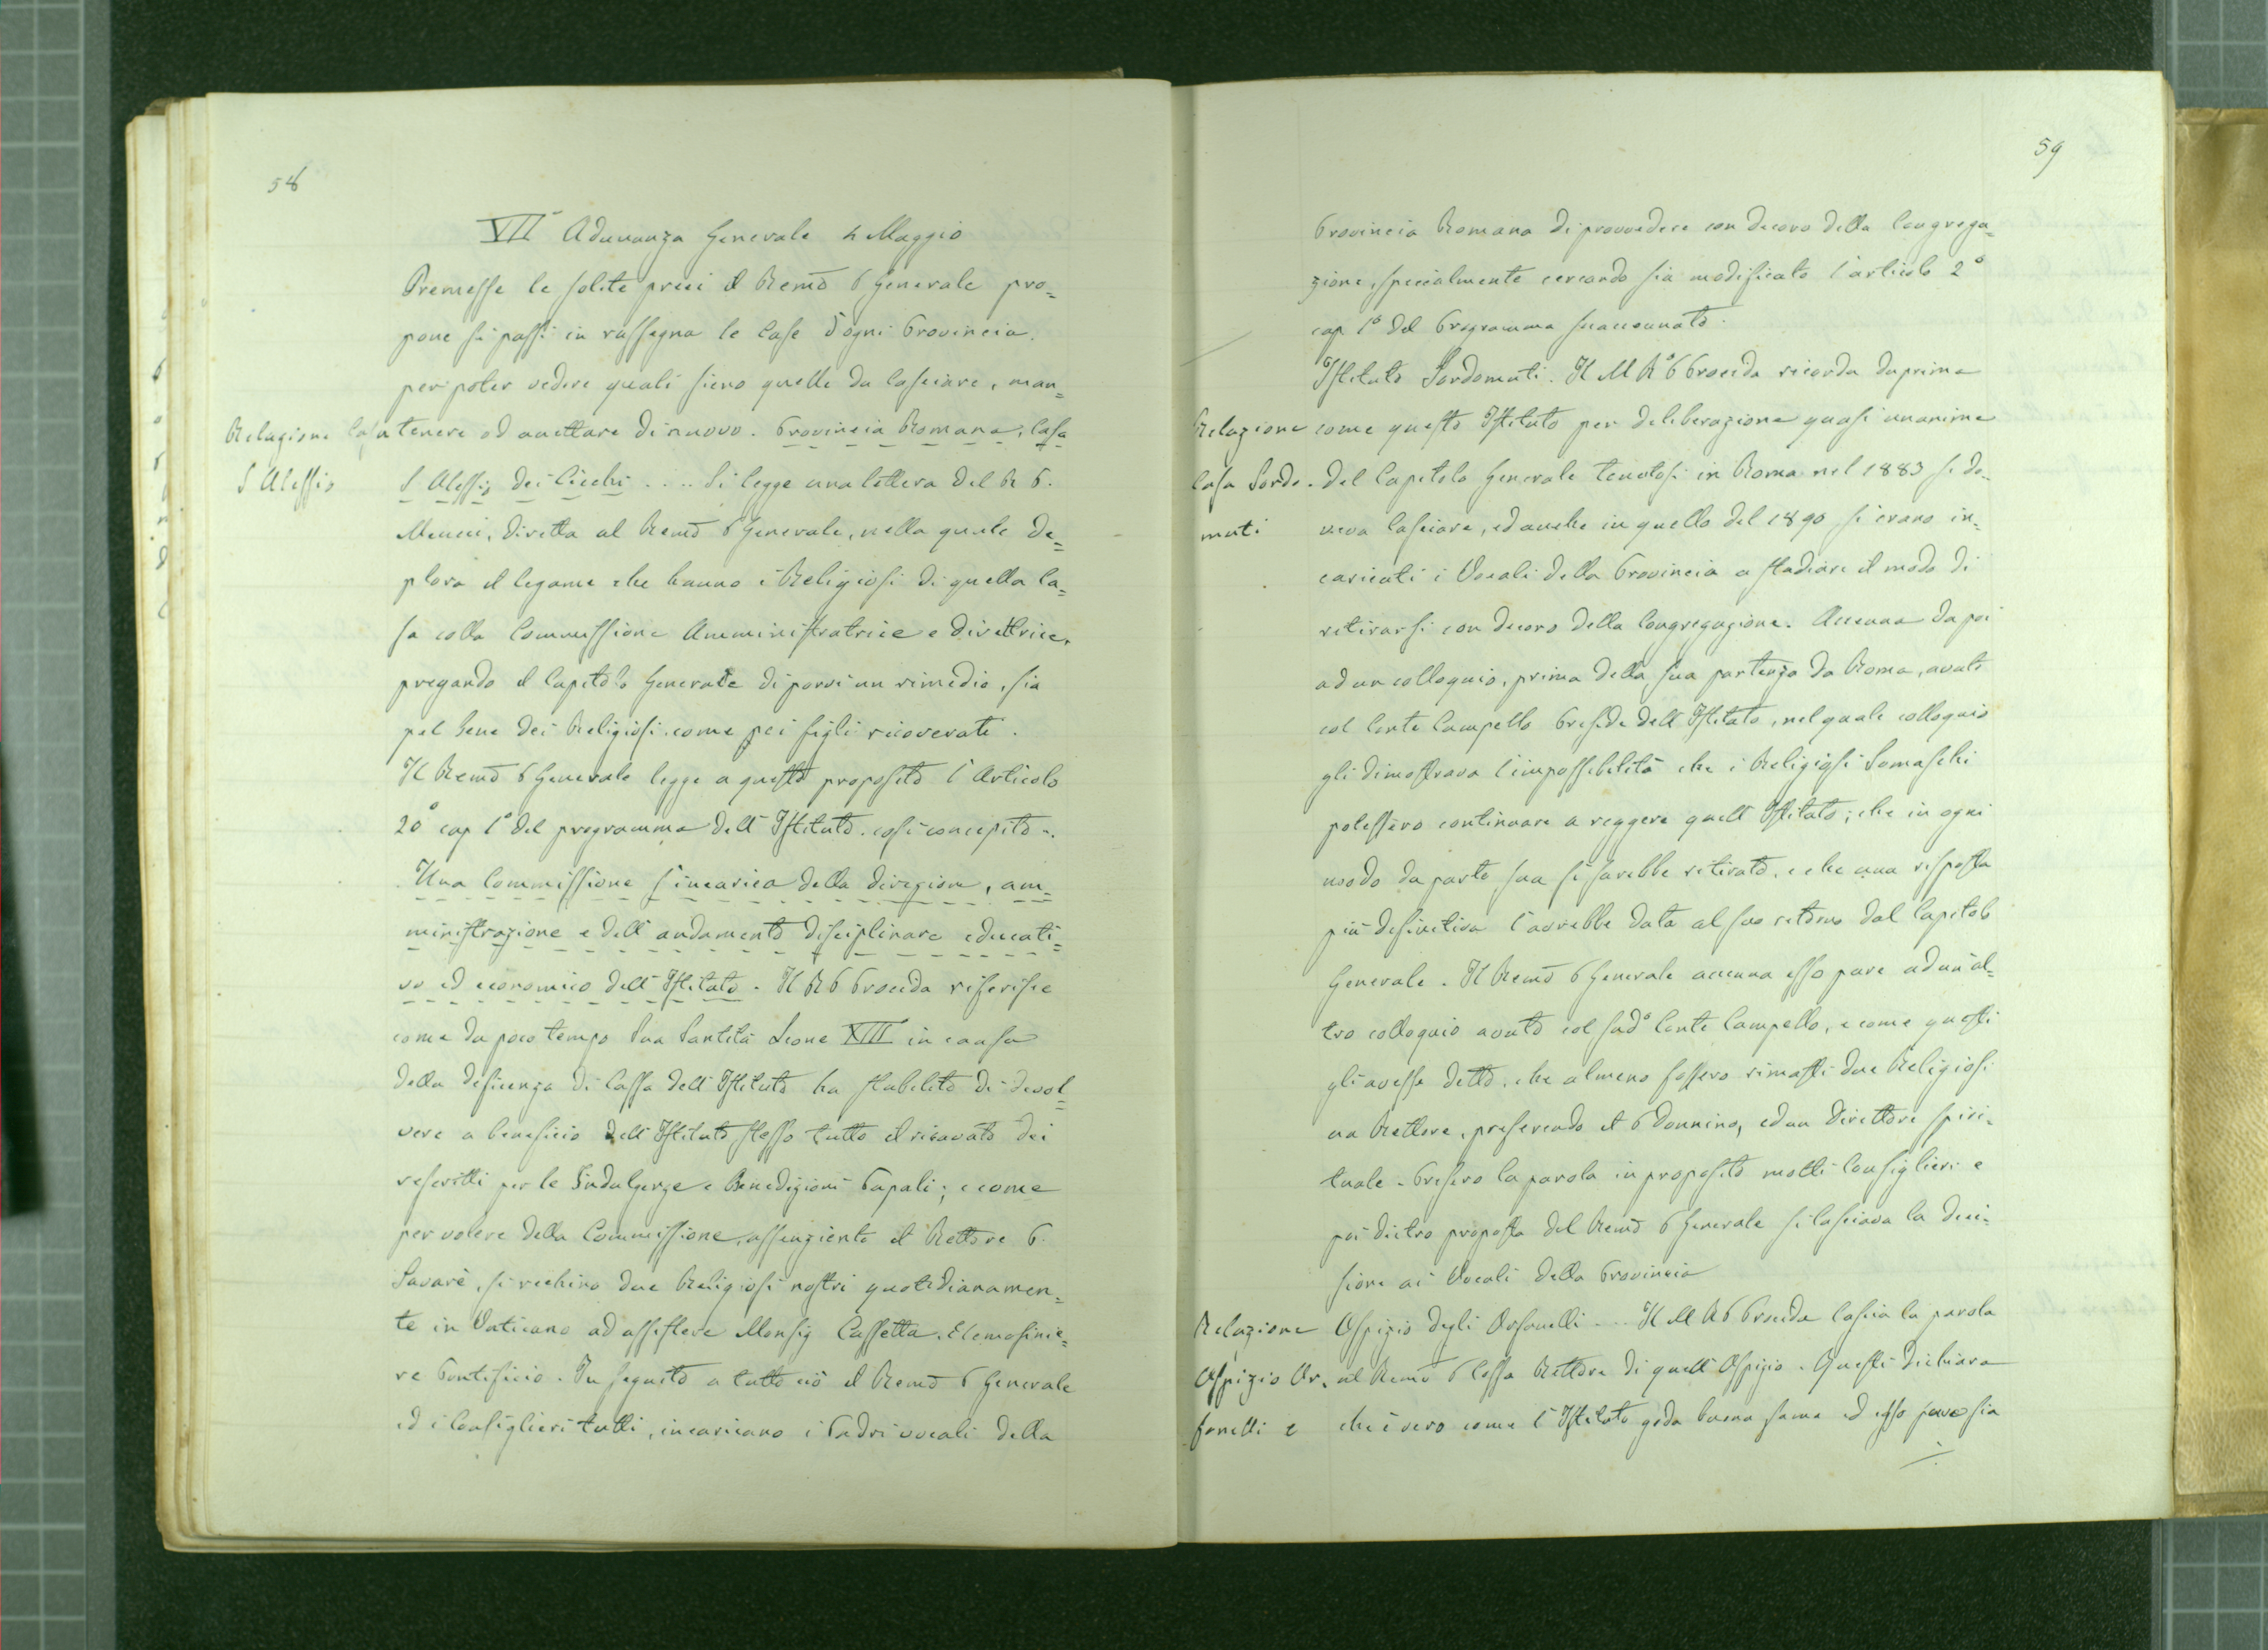 58
VII Adunanza Generale 4 Maggio
Premesse le solite preci il Remo P Generale pro=
pone si passi in rassegna le Case d'ogni Provincia,
per poter vedere quali sieno quelle da lasciare, man=
Relazione Casa
S Alessio
tenere od accettare di nuovo. Provincia Romana, Casa
S Alessio dei Ciechi .... Si legge una lettera del R P.
Meucci, diretta al Remo P Generale, nella quale de=
plora il legame che hanno i Religiosi di quella Ca=
sa colla Commissione Amministratrice e direttrice,
pregando il Capitolo Generale di porvi un rimedio, sia
pel bene dei Religiosi come pei figli ricoverati.
Il Remo P Generale legge a questo proposito l'Articolo
2º cap 1º del programma dell'Istituto così concepito -.
Una Commissione s'incarica della direzione, am=
ministrazione e dell'andamento disciplinare educati=
vo ed economico dell'Istituto. Il R P Procida riferisce
come da poco tempo Sua Santità Leone XIII in causa
della deficenza di Cassa dell'Istituto ha stabilito di devol=
vere a beneficio dell'Istituto stesso tutto il ricavato dei
rescritti per le Indulgenze e Benedizioni Papali; e come
per volere della Commissione, assenziente il Rettore P.
Savarè, si rechino due Religiosi nostri quotidianamen=
te in Vaticano ad assistere Monsig Cassetta, Elemosinie=
re Pontificio. In seguito a tutto ciò il Remo P Generale
ed i Consiglieri tutti, incaricano i Padri vocali della
59
Provincia Romana di provvedere con decoro della Congrega=
zione, specialmente cercando sia modificato l'articolo 2º
cap 1º del Programma suaccennato.
Istituto Sordomuti. Il M Rº P Procida ricorda daprima
Relazione
Casa Sordo-
muti
come questo Istituto per deliberazione quasi unanime
del Capitolo Generale tenutosi in Roma nel 1883 si do-
veva lasciare, ed anche in quello del 1890 si erano in-
caricati i Vocali della Provincia a studiare il modo di
ritirarsi con decoro della Congregazione. Accenna da poi
ad un colloquio, prima della sua partenza da Roma, avuto
col Conte Campello Preside dell'Istituto, nel quale colloquio
gli dimostrava l'impossibilità che i Religiosi Somaschi
potessero continuare a reggere quell'Istituto; che in ogni
modo da parte sua si sarebbe ritirato, e che una risposta
più definitiva l'avrebbe data al suo ritorno dal Capitolo
Generale. Il Remo P Generale accenna esso pure ad un al=
tro colloquio avuto col sudº Conte Campello, e come questi
gli avesse detto, che almeno fossero rimasti due Religiosi
un Rettore, preferendo il P Donnino, ed un Direttore spiri-
tuale - Presero la parola in proposito molti Consiglieri e
poi dietro proposta del Remo P Generale si lasciava la deci-
sione ai Vocali della Provincia
Relazione
Ospizio Or-
fanelli e
Ospizio degli Orfanelli .... Il M R P Procida lascia la parola
al Remo P Cossa Rettore di quell'Ospizio. Questi dichiara
che è vero come l'Istituto goda buona fama ed esso pure sia